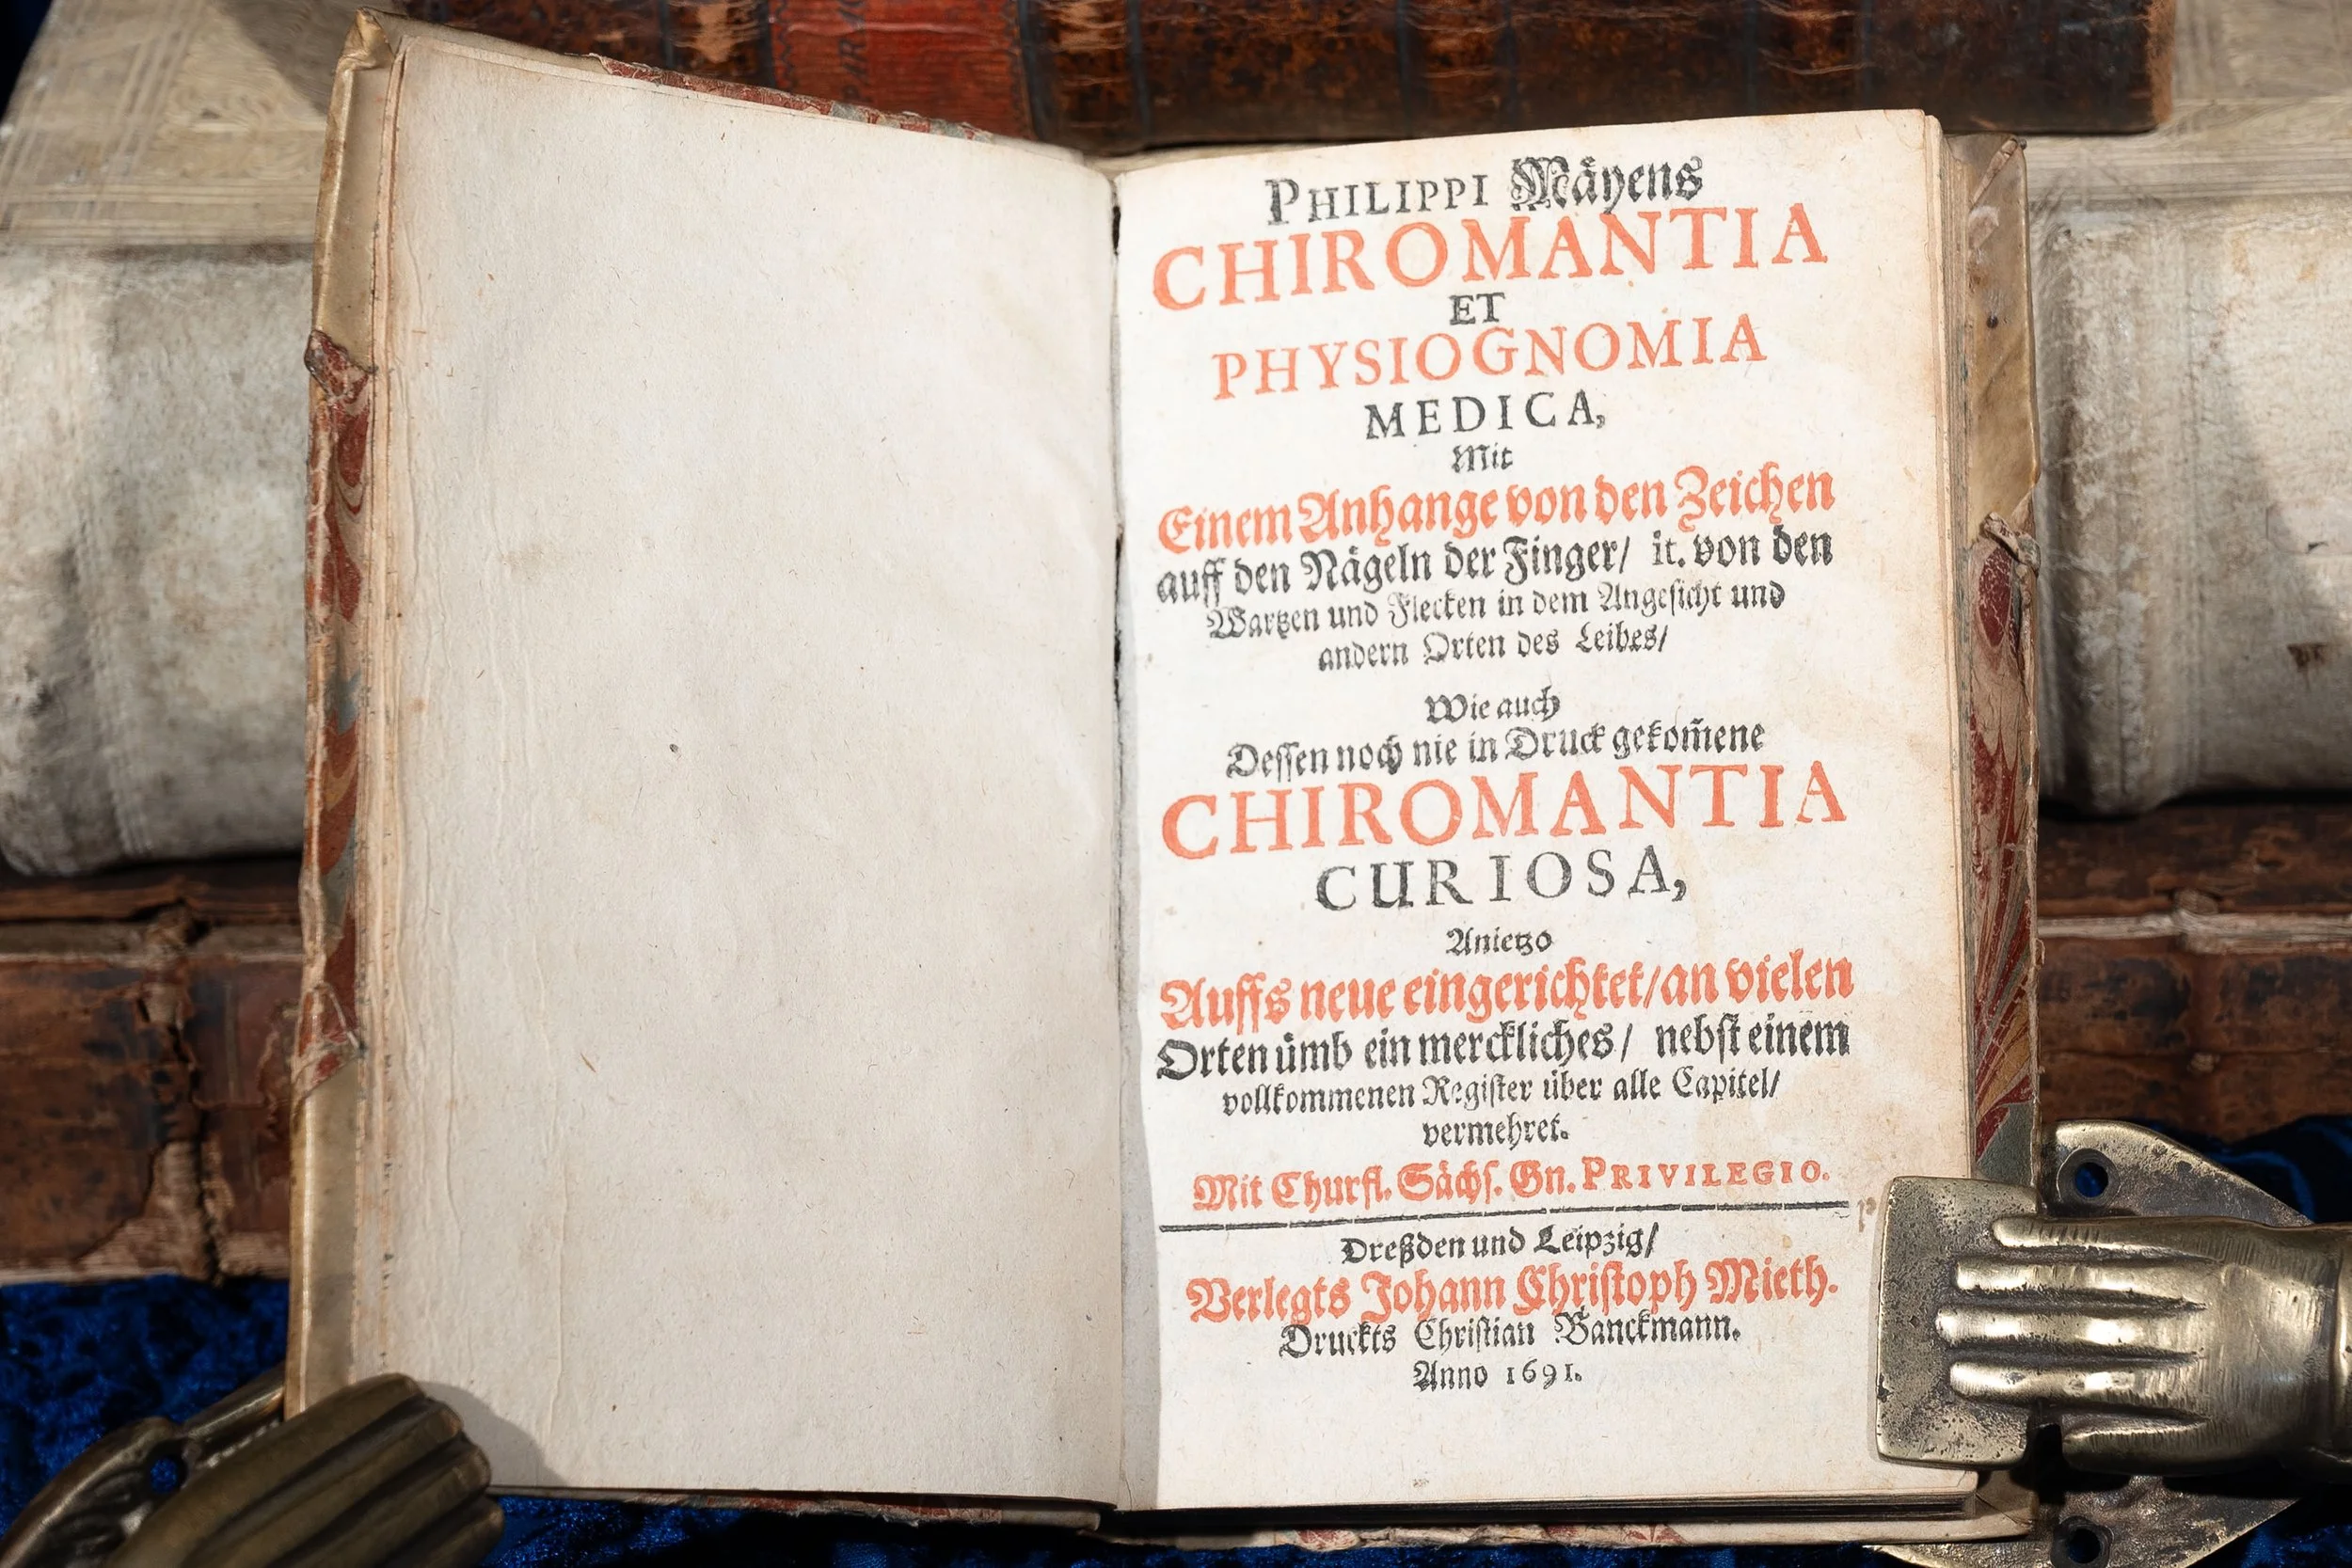 PHILIPPI Mäyens
CHIROMANTIA
ET
PHYSIOGNOMIA
MEDICA,
Mit
Einem Anhange von den Zeichen
auff den Nägeln der Finger/ it. von den
Wartzen und Flecken in dem Angesicht und
andern Orten des Leibes/
Wie auch
Dessen noch nie in Druck gekom̃ene
CHIROMANTIA
CURIOSA,
Anietzo
Auffs neue eingerichtet/an vielen
Orten ümb ein merckliches/ nebst einem
vollkommenen Register über alle Capitel/
vermehret.
Mit Churfl. Sächs. Gn. PRIVILEGIO.
Dreßden und Leipzig/
Verlegts Johann Christoph Mieth.
Druckts Christian Banckmann.
Anno 1691.